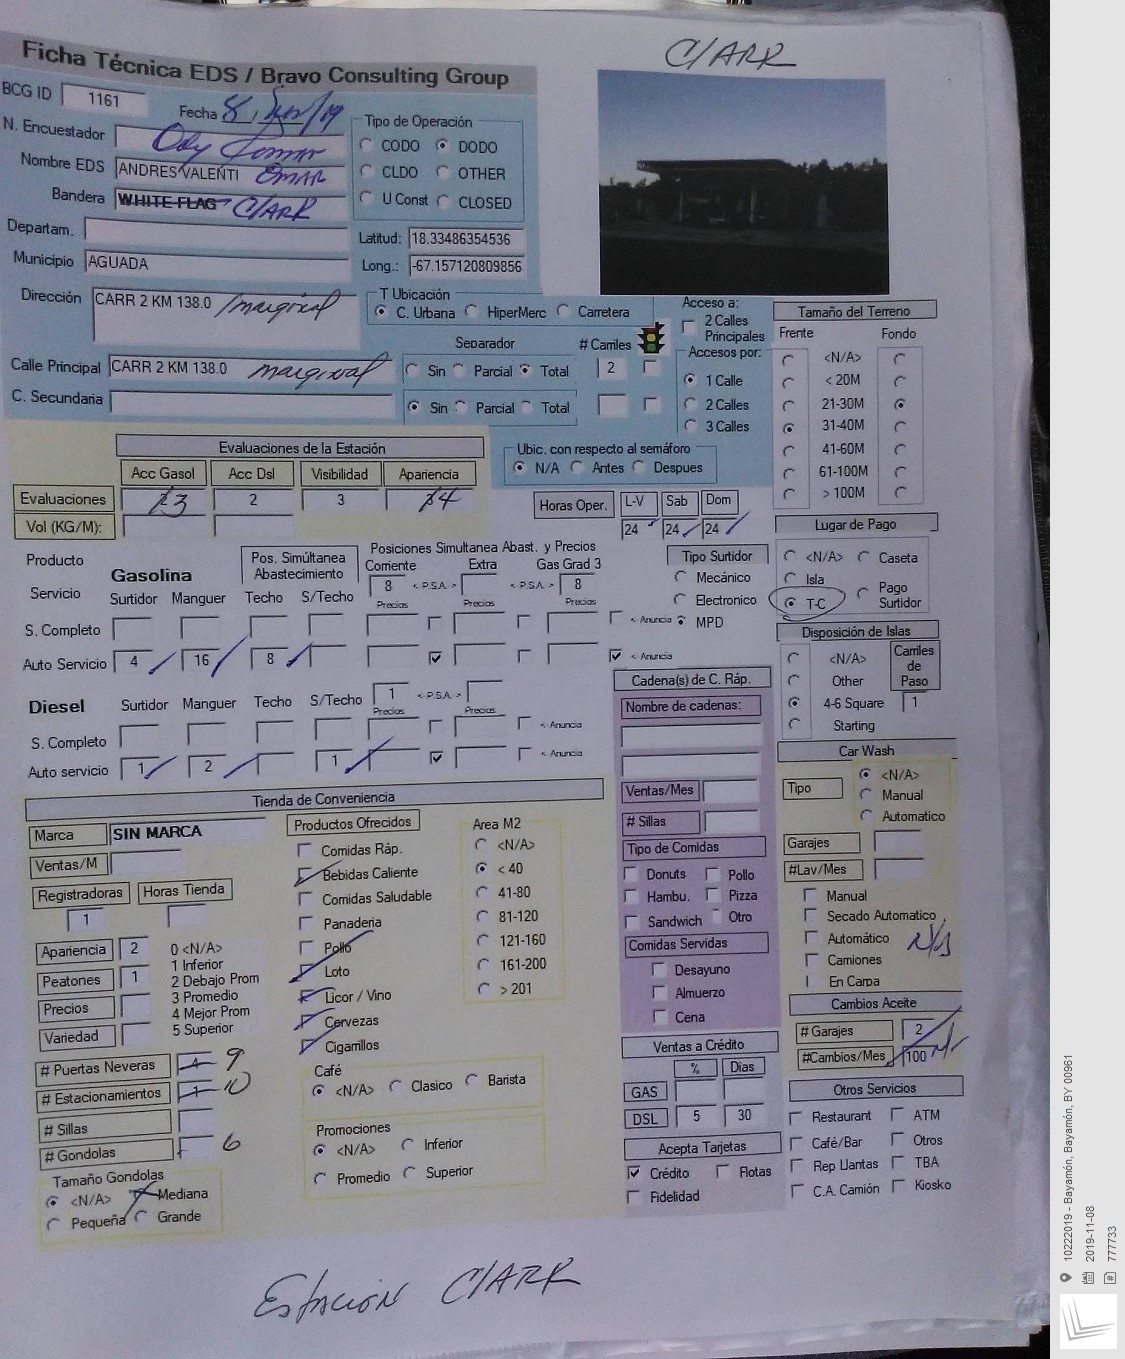 C/ARR
Ficha Técnica EDS / Bravo Consulting Group
BCG ID 1161
Fecha 8,
N. Encuestador
Nombre EDS ANDRES VALENTI OMAR
Bandera WHITE FLAG C/ARR
Departam.
Municipio AGUADA
Dirección CARR 2 KM 138.0 /marginal
Calle Principal CARR 2 KM 138.0 marginal
C. Secundaria
Tipo de Operación
CODO DODO
CLDO OTHER
U Const CLOSED
Latitud: 18.33486354536
Long.: -67.157120809856
T Ubicación
C. Urbana HiperMerc Carretera
Separador # Carriles
Sin Parcial Total 2
Sin Parcial Total
Acceso a:
2 Calles
Principales
Accesos por:
1 Calle
2 Calles
3 Calles
Ubic. con respecto al semáforo
N/A Antes Despues
Tamaño del Terreno
Frente Fondo
<N/A>
< 20M
21-30M
31-40M
41-60M
61-100M
> 100M
Evaluaciones de la Estación
Acc Gasol Acc Dsl Visibilidad Apariencia
Evaluaciones 3 2 3 4
Vol (KG/M):
Horas Oper. L-V Sab Dom
24 24 24
Lugar de Pago
<N/A> Caseta
Isla
T-C Pago
Surtidor
Producto
Servicio
Gasolina
Pos. Simúltanea
Abastecimiento
Posiciones Simultanea Abast. y Precios
Corriente Extra Gas Grad 3
8 < P.S.A. > < P.S.A. > 8
Surtidor Manguer Techo S/Techo Precios Precios Precios
S. Completo < Anuncia
Auto Servicio 4 16 8 < Anuncia
Tipo Surtidor
Mecánico
Electronico
MPD
Disposición de Islas
<N/A>
Other
4-6 Square
Starting
Carriles
de
Paso
1
Diesel Surtidor Manguer Techo S/Techo 1 < P.S.A. >
Precios Precios
S. Completo < Anuncia
Auto servicio 1 2 1 < Anuncia
Cadena(s) de C. Ráp.
Nombre de cadenas:
Ventas/Mes
# Sillas
Tipo de Comidas
Donuts Pollo
Hambu. Pizza
Sandwich Otro
Comidas Servidas
Desayuno
Almuerzo
Cena
Car Wash
Tipo <N/A>
Manual
Automatico
Garajes
#Lav/Mes
Manual
Secado Automatico
Automático
Camiones
En Carpa
N/A
Tienda de Conveniencia
Marca SIN MARCA
Ventas/M
Registradoras Horas Tienda
1
Apariencia 2
Peatones 1
Precios
Variedad
0 <N/A>
1 Inferior
2 Debajo Prom
3 Promedio
4 Mejor Prom
5 Superior
# Puertas Neveras 4 9
# Estacionamientos 1 10
# Sillas
# Gondolas 6
Tamaño Gondolas
<N/A> Mediana
Pequeña Grande
Productos Ofrecidos
Comidas Ráp.
Bebidas Caliente
Comidas Saludable
Panaderia
Pollo
Loto
Licor / Vino
Cervezas
Cigarrillos
Area M2
<N/A>
< 40
41-80
81-120
121-160
161-200
> 201
Café
<N/A> Clasico Barista
Promociones
<N/A> Inferior
Promedio Superior
Ventas a Crédito
% Dias
GAS
DSL 5 30
Acepta Tarjetas
Crédito Flotas
Fidelidad
Cambios Aceite
# Garajes 2
#Cambios/Mes 100
Otros Servicios
Restaurant ATM
Café/Bar Otros
Rep Llantas TBA
C.A. Camión Kiosko
Estación C/ARR
10222019 - Bayamón, Bayamón, BY 00961
2019-11-08
777733